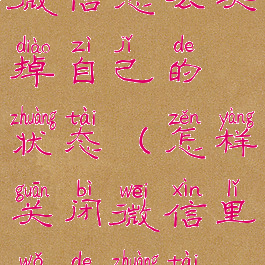 微信怎么关
diào zì jǐ de
掉自己的
zhuàng tài zěn yàng
状态(怎样
guān bì wēi xìn lǐ
关闭微信里
wǒ de zhuàng tài